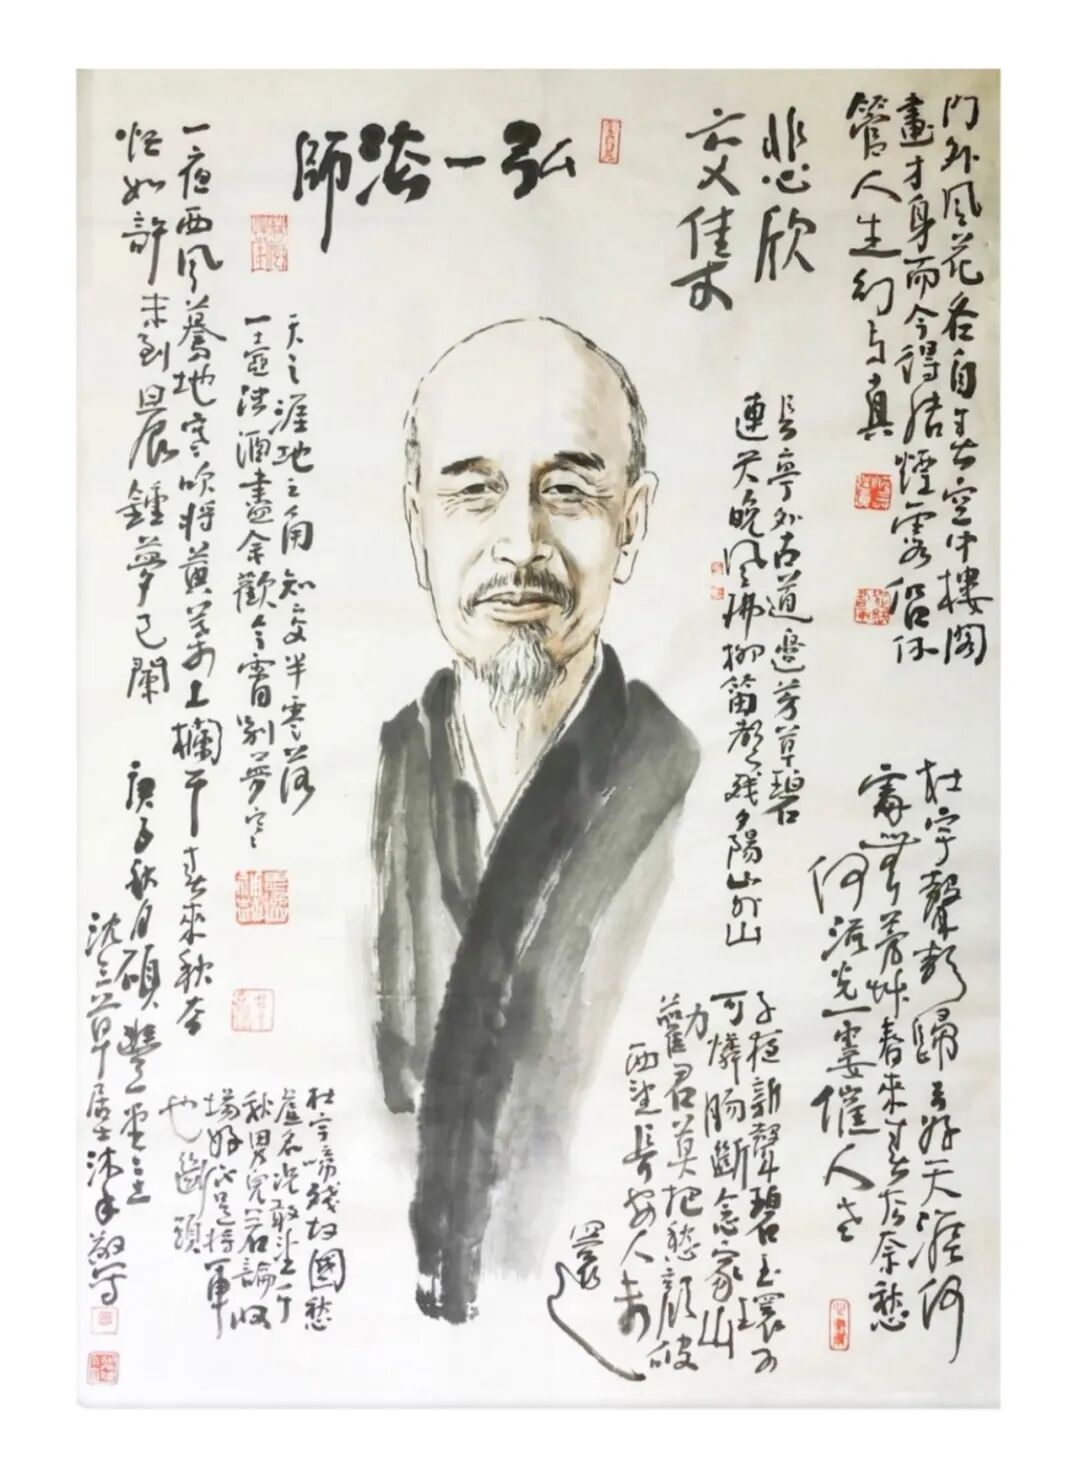 門外風花各自春空中樓閣
畫中身而今得結煙霞侶休
管人生幻與真
悲欣
交集
弘一法師
長亭外古道邊芳草碧
連天晚風拂柳笛聲殘夕陽山外山
杜宇聲聲歸去好天涯何
處無芳草春來春去奈愁
何流光一霎催人老
子夜新聲碧玉環可
可憐腸斷念家山
勸君莫把愁顏破
西望長安人未
還
天之涯地之角知交半零落
一壺濁酒盡余歡今宵別夢寒
一夜西風驀地寒吹將黃葉上欄干春來秋去
忙如許未到晨鐘夢已闌
杜宇啼殘故國愁
虛名況敢望千
秋男兒若論收
場好不是將軍
也斷頭
庚子秋月碩豐堂主
沈草居士沐手敬寫